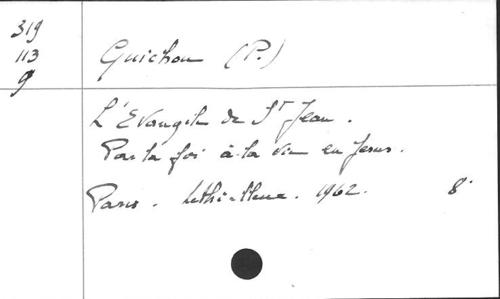 319
113
9
Guichou (P.)
L'Evangile de St Jean.
Par la foi à la vie en Jesus.
Paris. Lethielleux. 1962. 8°